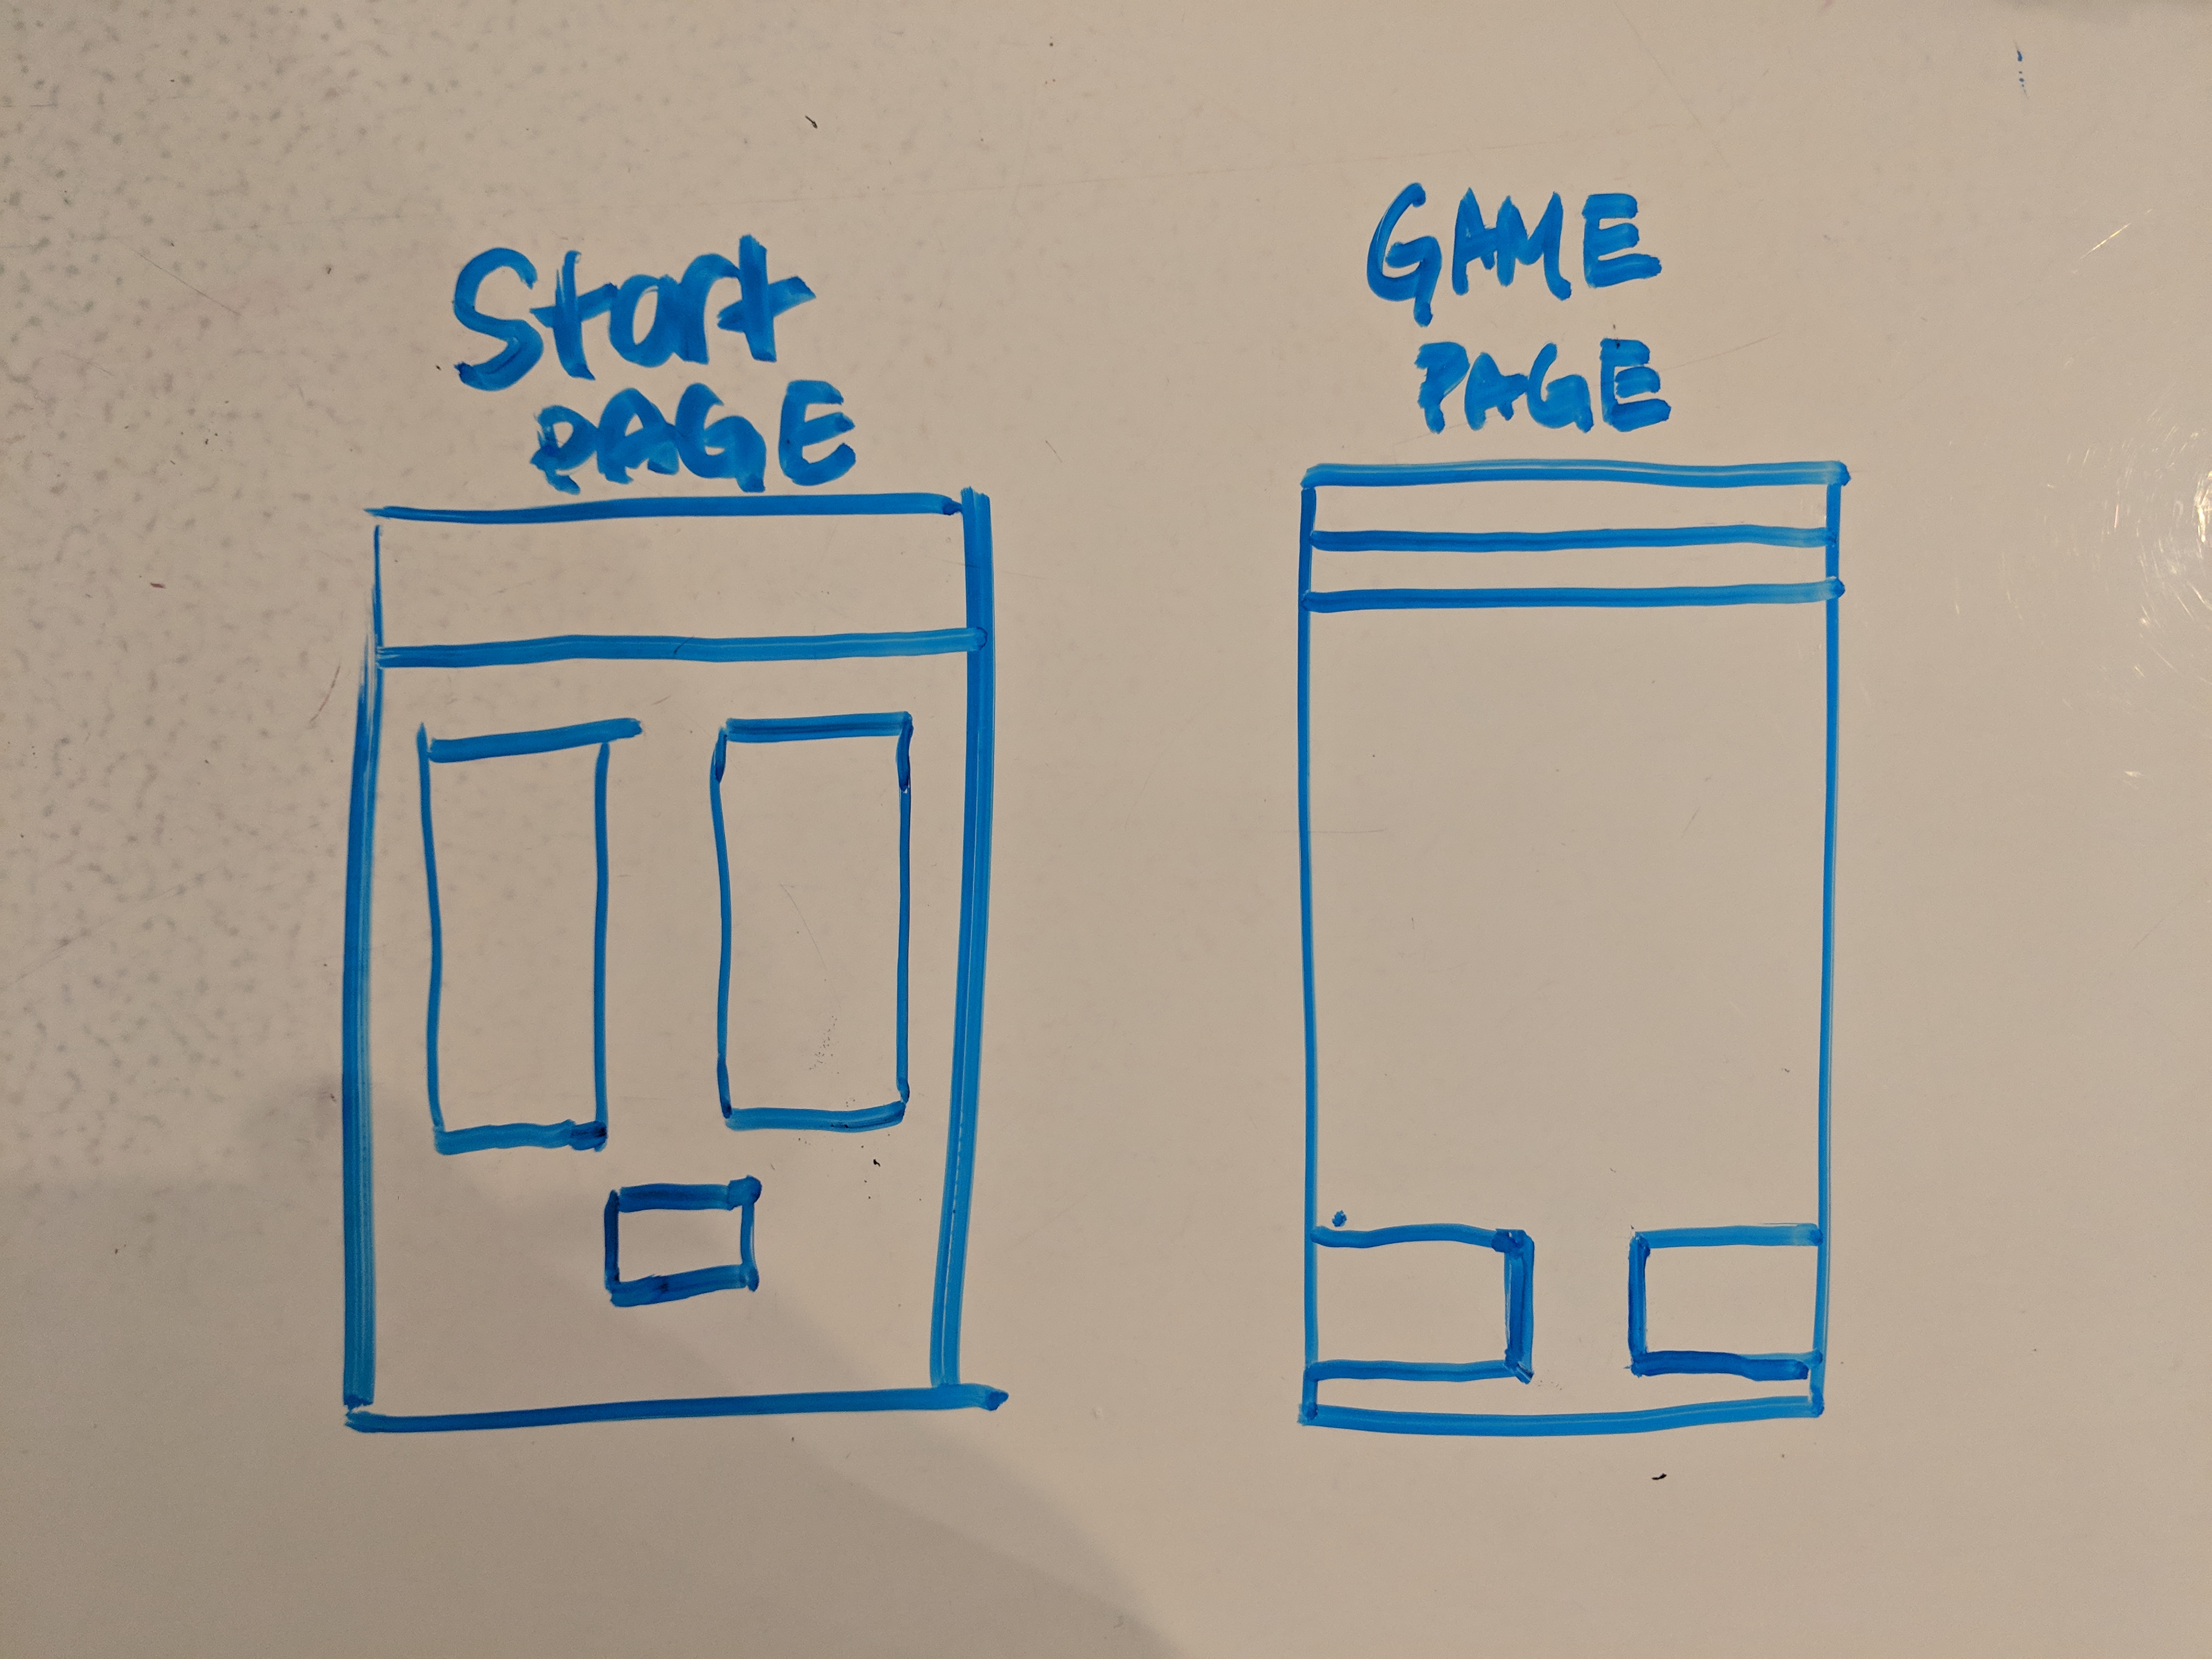 Start
PAGE
GAME
PAGE